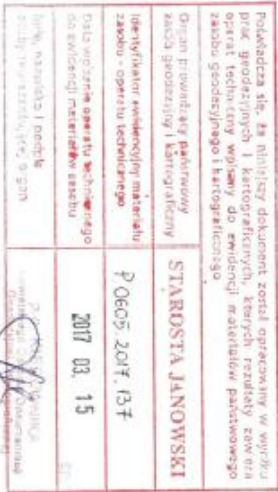 Poświadcza się, że niniejszy dokument został opracowany w wyniku
prac geodezyjnych i kartograficznych, których rezultaty zawiera
operat techniczny wpisany do ewidencji materiałów państwowego
zasobu geodezyjnego i kartograficznego
Organ prowadzący państwowy
zasób geodezyjny i kartograficzny
STAROSTA JANOWSKI
Identyfikator ewidencyjny materiału
zasobu - operatu technicznego
P.0605.2017.137
Data wpisania operatu technicznego
do ewidencji materiałów zasobu
2017 03. 15
Imię, nazwisko i podpis